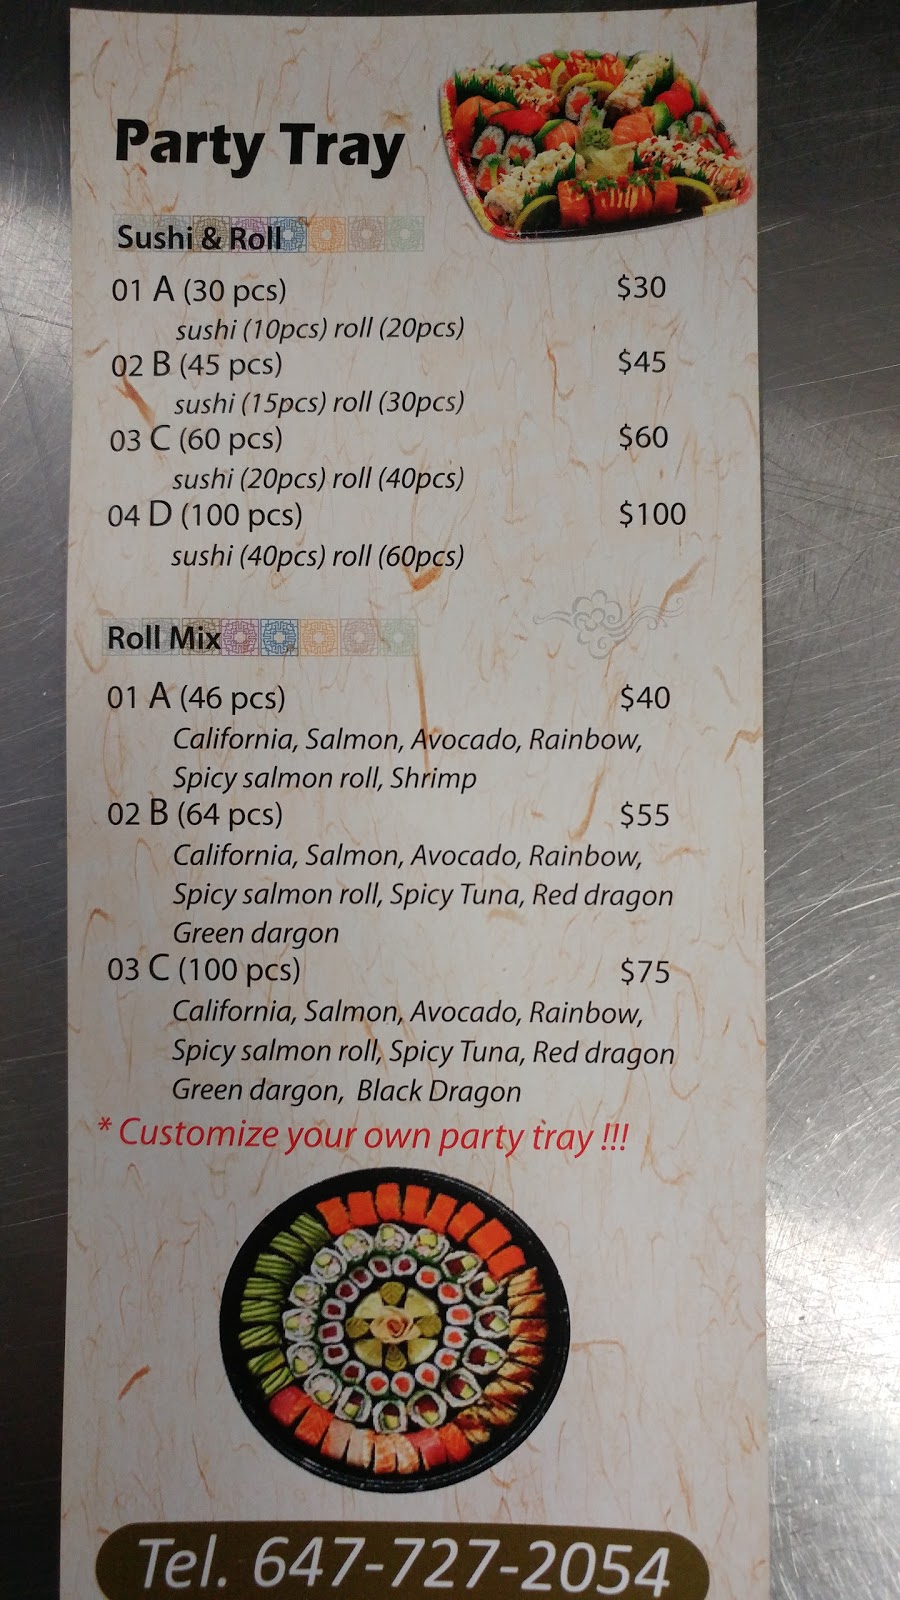 Party Tray
Sushi & Roll
01 A (30 pcs) $30
sushi (10pcs) roll (20pcs)
02 B (45 pcs) $45
sushi (15pcs) roll (30pcs)
03 C (60 pcs) $60
sushi (20pcs) roll (40pcs)
04 D (100 pcs) $100
sushi (40pcs) roll (60pcs)
Roll Mix
01 A (46 pcs) $40
California, Salmon, Avocado, Rainbow,
Spicy salmon roll, Shrimp
02 B (64 pcs) $55
California, Salmon, Avocado, Rainbow,
Spicy salmon roll, Spicy Tuna, Red dragon
Green dargon
03 C (100 pcs) $75
California, Salmon, Avocado, Rainbow,
Spicy salmon roll, Spicy Tuna, Red dragon
Green dargon, Black Dragon
* Customize your own party tray !!!
Tel. 647-727-2054